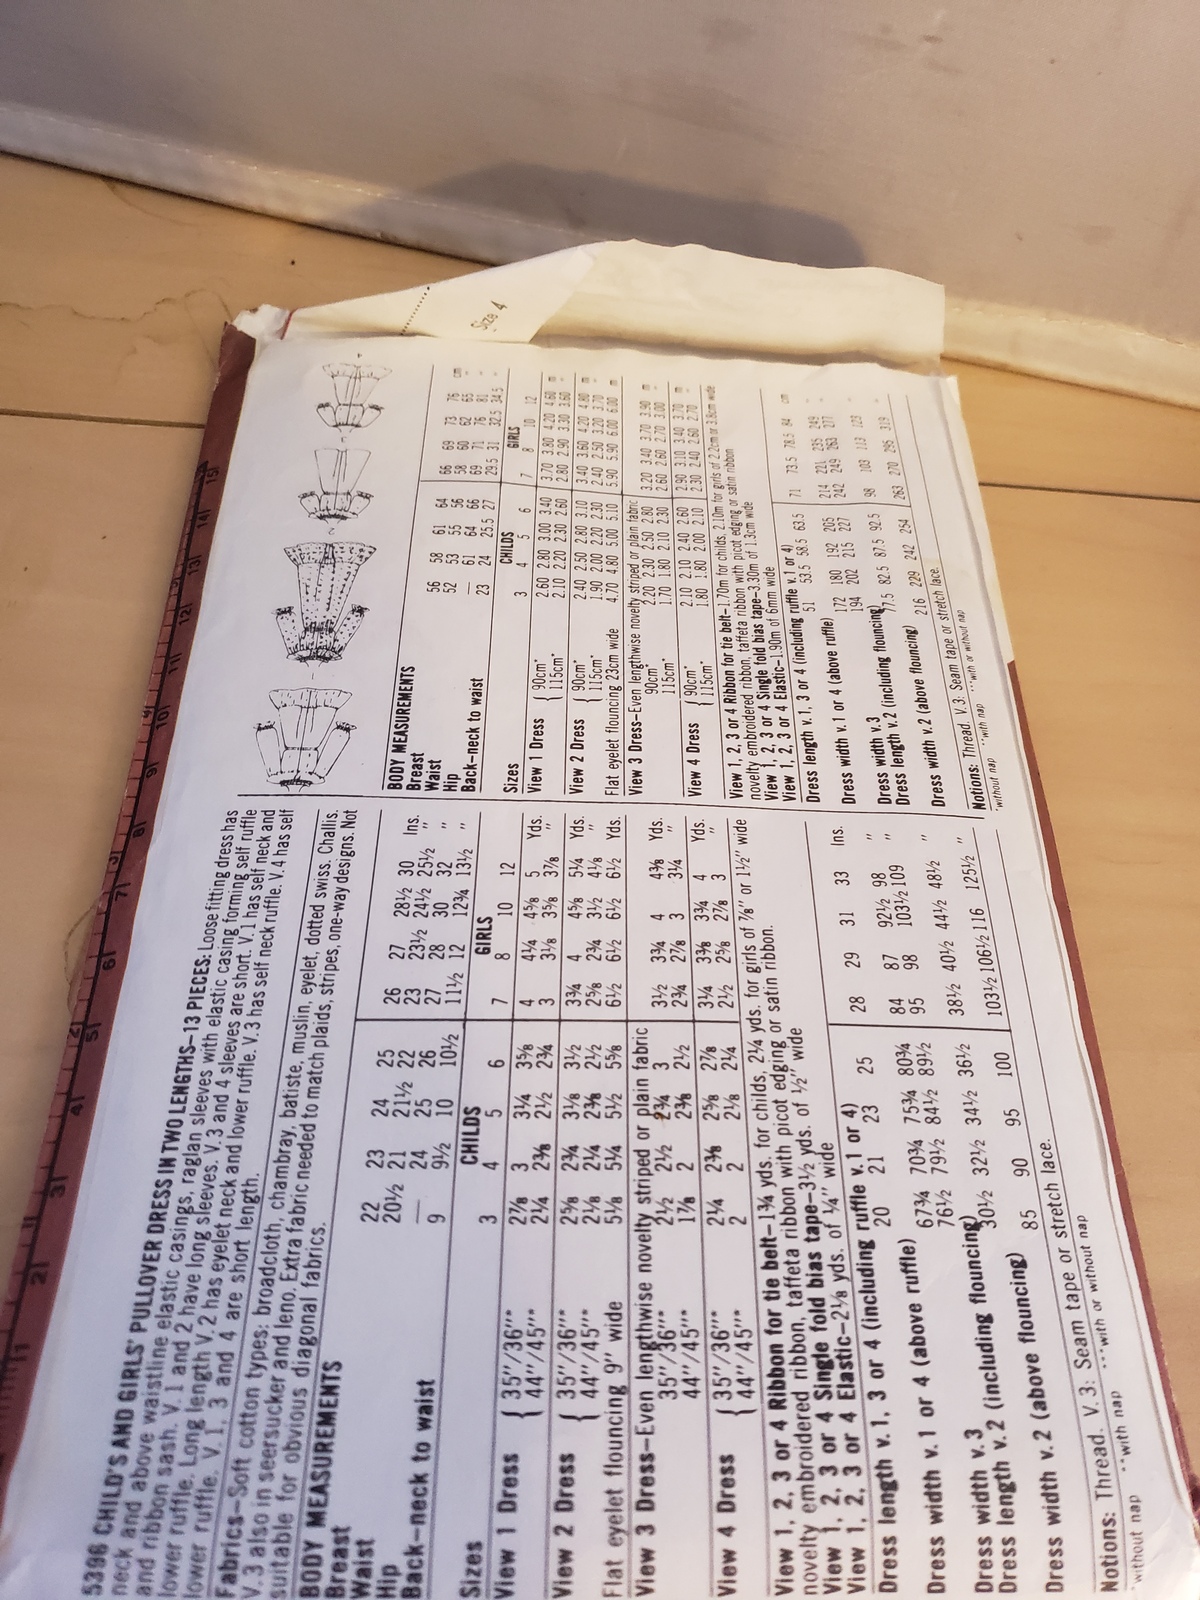 5396 CHILD'S AND GIRLS' PULLOVER DRESS IN TWO LENGTHS–13 PIECES: Loose fitting dress has
neck and above waistline elastic casings, raglan sleeves with elastic casing forming self ruffle
and ribbon sash. V. 1 and 2 have long sleeves. V. 3 and 4 sleeves are short. V. 1 has self neck and
lower ruffle. Long length V. 2 has eyelet neck and lower ruffle. V. 3 has self neck ruffle. V. 4 has self
lower ruffle. V. 1, 3 and 4 are short length.
Fabrics–Soft cotton types: broadcloth, chambray, batiste, muslin, eyelet, dotted swiss. Challis.
V. 3 also in seersucker and leno. Extra fabric needed to match plaids, stripes, one-way designs. Not
suitable for obvious diagonal fabrics.
BODY MEASUREMENTS
Breast 22 23 24 25 26 27 28½ 30 Ins.
Waist 20½ 21 21½ 22 23 23½ 24½ 25½ "
Hip — 24 25 26 27 28 30 32 "
Back–neck to waist 9 9½ 10 10½ 11½ 12 12¾ 13½ "
CHILDS GIRLS
Sizes 3 4 5 6 7 8 10 12
View 1 Dress { 35"/36"*** 2⅞ 3 3¼ 3⅝ 4 4¼ 4⅝ 5 Yds.
44"/45"*** 2¼ 2⅜ 2½ 2¾ 3 3⅛ 3⅝ 3⅞ "
View 2 Dress { 35"/36"*** 2⅝ 2¾ 3⅛ 3½ 3¾ 4 4⅝ 5¼ Yds.
44"/45"*** 2⅛ 2¼ 2⅜ 2½ 2⅝ 2¾ 3½ 4⅛ "
Flat eyelet flouncing 9" wide 5⅛ 5¼ 5½ 5⅝ 6½ 6½ 6½ 6½ Yds.
View 3 Dress–Even lengthwise novelty striped or plain fabric
35"/36"*** 2½ 2½ 2¾ 3 3½ 3¾ 4 4⅜ Yds.
44"/45"*** 1⅞ 2 2⅜ 2½ 2¾ 2⅞ 3 3¼ "
View 4 Dress { 35"/36"*** 2¼ 2⅜ 2⅝ 2⅞ 3¼ 3⅜ 3¾ 4 Yds.
44"/45"*** 2 2 2⅛ 2¼ 2½ 2⅝ 2⅞ 3 "
View 1, 2, 3 or 4 Ribbon for tie belt–1¾ yds. for childs, 2¼ yds. for girls of ⅞" or 1½" wide
novelty embroidered ribbon, taffeta ribbon with picot edging or satin ribbon.
View 1, 2, 3 or 4 Single fold bias tape–3½ yds. of ½" wide
View 1, 2, 3 or 4 Elastic–2⅛ yds. of ¼" wide
Dress length v. 1, 3 or 4 (including ruffle v. 1 or 4)
20 21 23 25 28 29 31 33 Ins.
Dress width v. 1 or 4 (above ruffle)
67¾ 70¾ 75¾ 80¾ 84 87 92½ 98 "
Dress width v. 3 76½ 79½ 84½ 89½ 95 98 103½ 109 "
Dress length v. 2 (including flouncing)
30½ 32½ 34½ 36½ 38½ 40½ 44½ 48½ "
Dress width v. 2 (above flouncing)
85 90 95 100 103½ 106½ 116 125½ "
Notions: Thread. V. 3: Seam tape or stretch lace.
*without nap **with nap ***with or without nap
BODY MEASUREMENTS
Breast 56 58 61 64 66 69 73 76 cm
Waist 52 53 55 56 58 60 62 65 "
Hip — 61 64 66 69 71 76 81 "
Back–neck to waist 23 24 25.5 27 29.5 31 32.5 34.5 "
CHILDS GIRLS
Sizes 3 4 5 6 7 8 10 12
View 1 Dress { 90cm* 2.60 2.80 3.00 3.40 3.70 3.80 4.20 4.60 m
115cm* 2.10 2.20 2.30 2.60 2.80 2.90 3.30 3.60 "
View 2 Dress { 90cm* 2.40 2.50 2.80 3.10 3.40 3.60 4.20 4.80 m
115cm* 1.90 2.00 2.20 2.30 2.40 2.50 3.20 3.70 "
Flat eyelet flouncing 23cm wide 4.70 4.80 5.00 5.10 5.90 5.90 6.00 6.00 m
View 3 Dress–Even lengthwise novelty striped or plain fabric
90cm* 2.20 2.30 2.50 2.80 3.20 3.40 3.70 3.90 m
115cm* 1.70 1.80 2.10 2.30 2.60 2.60 2.70 3.00 "
View 4 Dress { 90cm* 2.10 2.10 2.40 2.60 2.90 3.10 3.40 3.70 m
115cm* 1.80 1.80 2.00 2.10 2.30 2.40 2.60 2.70 "
View 1, 2, 3 or 4 Ribbon for tie belt–1.70m for childs, 2.10m for girls of 2.2cm or 3.8cm wide
novelty embroidered ribbon, taffeta ribbon with picot edging or satin ribbon
View 1, 2, 3 or 4 Single fold bias tape–3.30m of 1.3cm wide
View 1, 2, 3 or 4 Elastic–1.90m of 6mm wide
Dress length v. 1, 3 or 4 (including ruffle v. 1 or 4)
51 53.5 58.5 63.5 71 73.5 78.5 84 cm
Dress width v. 1 or 4 (above ruffle)
172 180 192 205 214 221 235 249 "
Dress width v. 3 194 202 215 227 242 249 263 277 "
Dress length v. 2 (including flouncing)
77.5 82.5 87.5 92.5 98 103 113 123 "
Dress width v. 2 (above flouncing)
216 229 242 254 263 270 295 319 "
Notions: Thread. V. 3: Seam tape or stretch lace.
*without nap **with nap ***with or without nap
Size 4
1 2 3 4 5 6 7 8 9 10 11 12 13 14 15